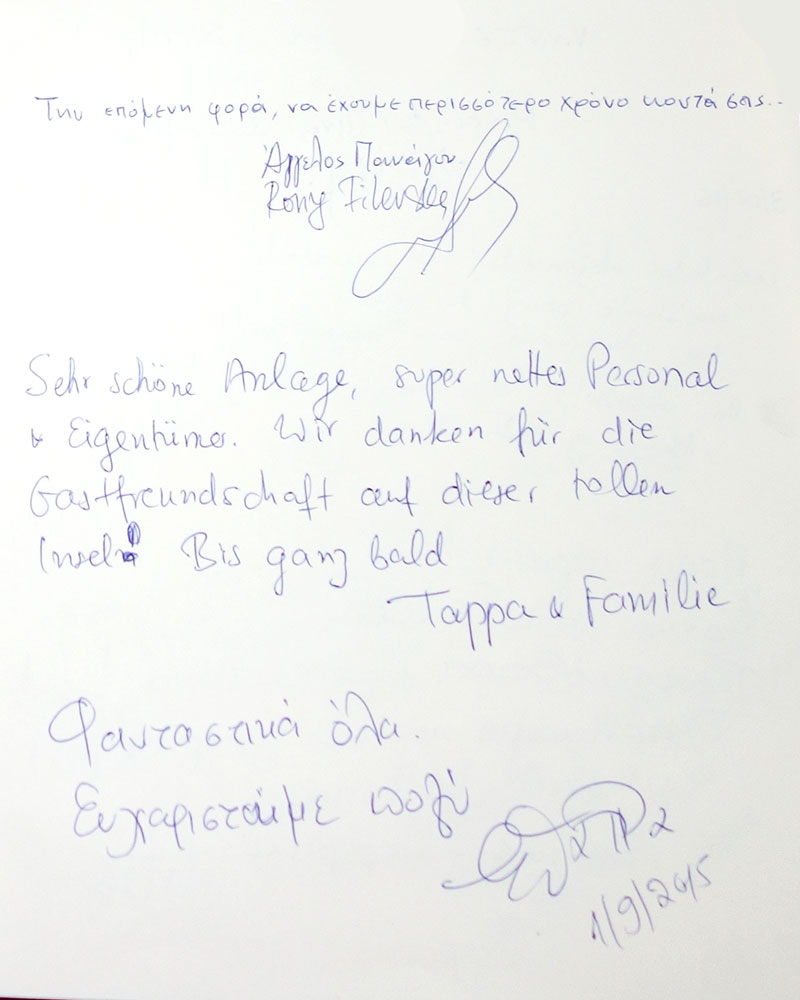 Την επόμενη φορά, να έχουμε περισσότερο χρόνο κοντά σας..
Άγγελος
Rony
Sehr schöne Anlage, super nettes Personal
& Eigentümer. Wir danken für die
Gastfreundschaft auf dieser tollen
Insel! Bis ganz bald
Tappa & Familie
Φανταστικά όλα.
Ευχαριστούμε πολύ
1/9/2015